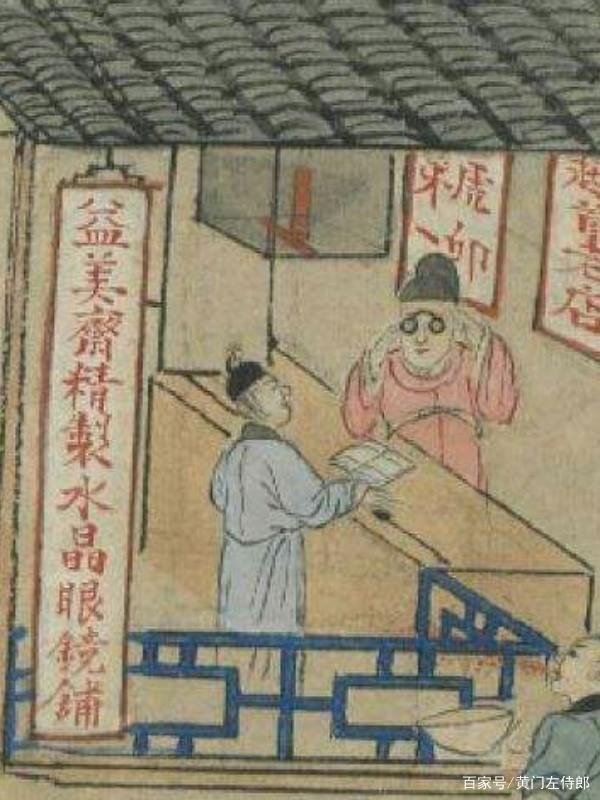 益美齋精製水晶眼鏡舖
老店
百家号/黄门左侍郎